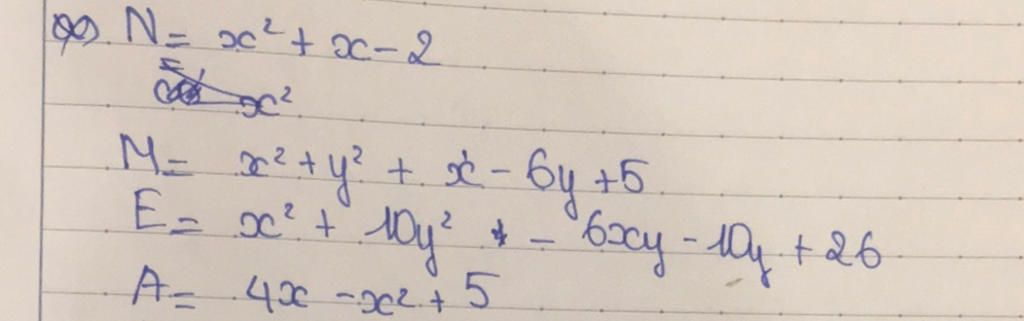 N = x² + x - 2
x²
M = x² + y² + x - 6y + 5
E = x² + 10y² - 6xy - 10y + 26
A = 4x - x² + 5